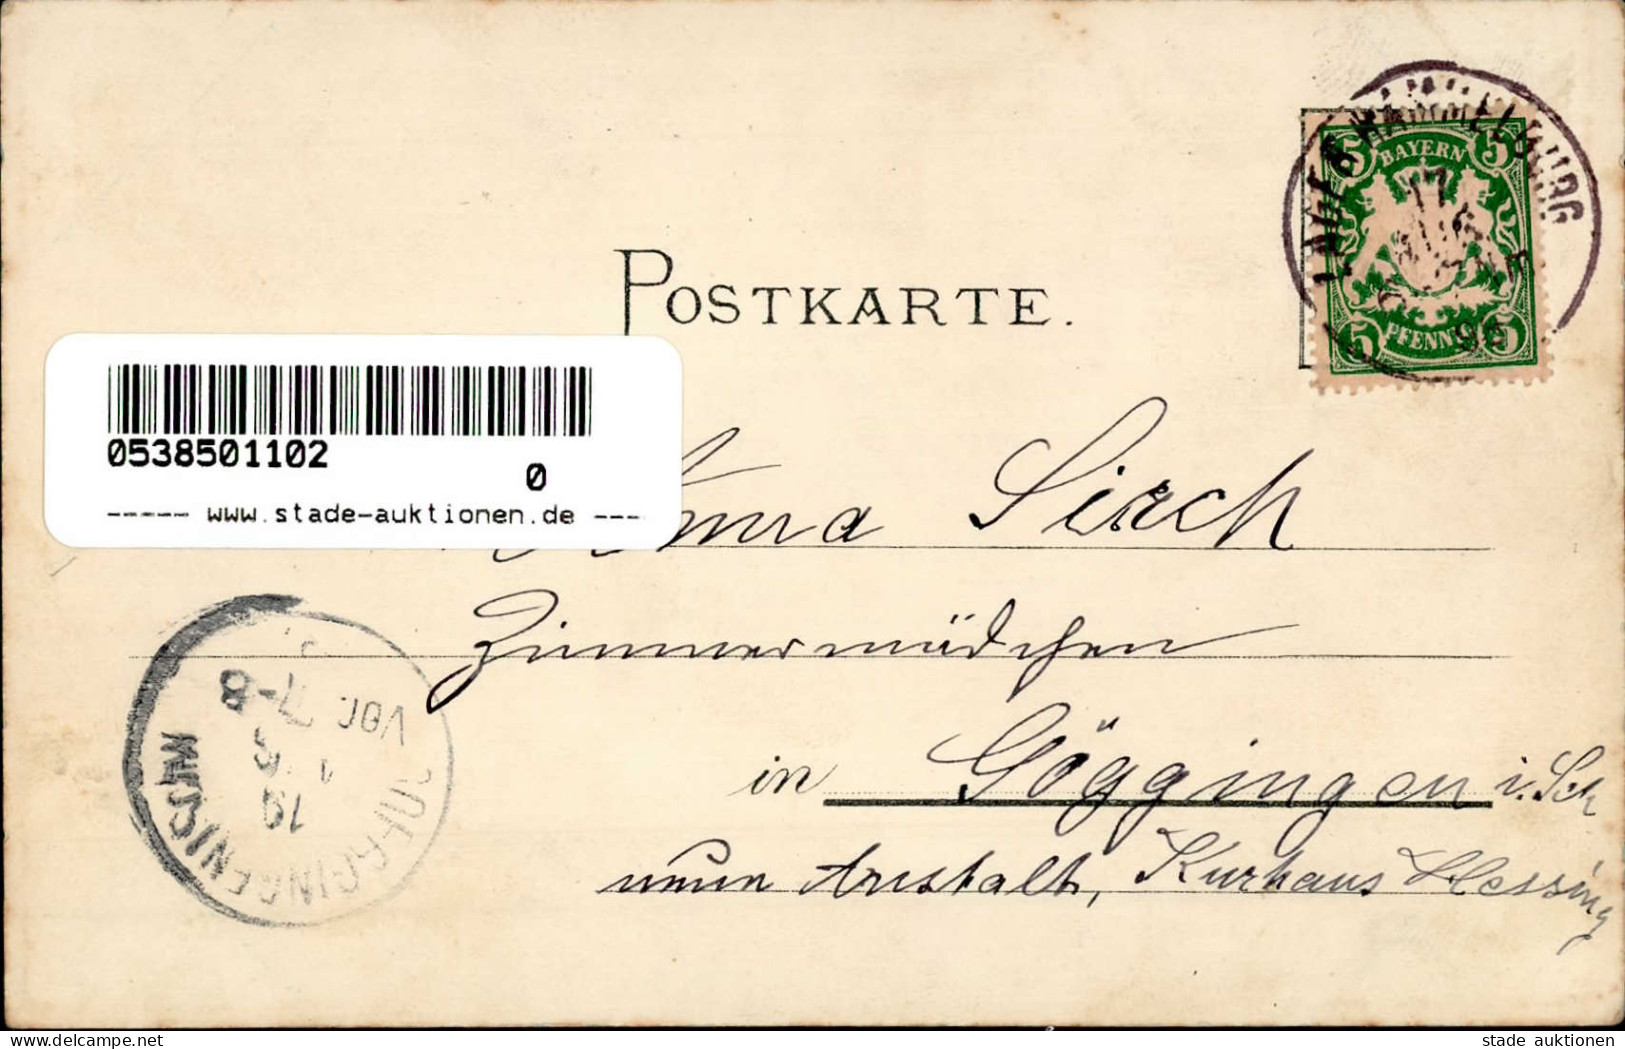 LAGER HAMMELBURG
5 BAYERN 5
17
AUG
98
5 PFENNIG 5
POSTKARTE.
0538501102
0
----- www.stade-auktionen.de ---
Anna Sirch
Zimmermädchen
in Göggingen i. Sch
neue Anstalt, Kurhaus Hessing
VOR. 7-8
19
delcampe.net
stade auktionen